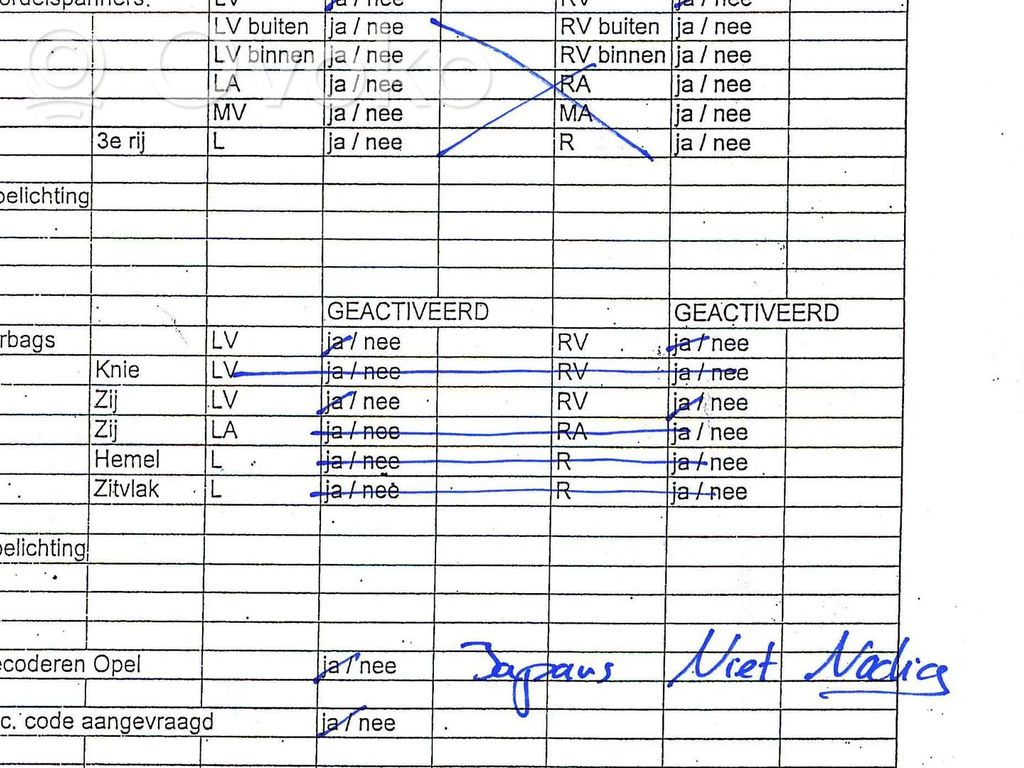 ordelspanners: LV ja / nee RV ja / nee
LV buiten ja / nee RV buiten ja / nee
LV binnen ja / nee RV binnen ja / nee
LA ja / nee RA ja / nee
MV ja / nee MA ja / nee
3e rij L ja / nee R ja / nee
oelichting
GEACTIVEERD GEACTIVEERD
rbags LV ja / nee RV ja / nee
Knie LV ja / nee RV ja / nee
Zij LV ja / nee RV ja / nee
Zij LA ja / nee RA ja / nee
Hemel L ja / nee R ja / nee
Zitvlak L ja / nee R ja / nee
oelichting
ecoderen Opel ja / nee Japans Niet Nodig
c. code aangevraagd ja / nee
Ovoko